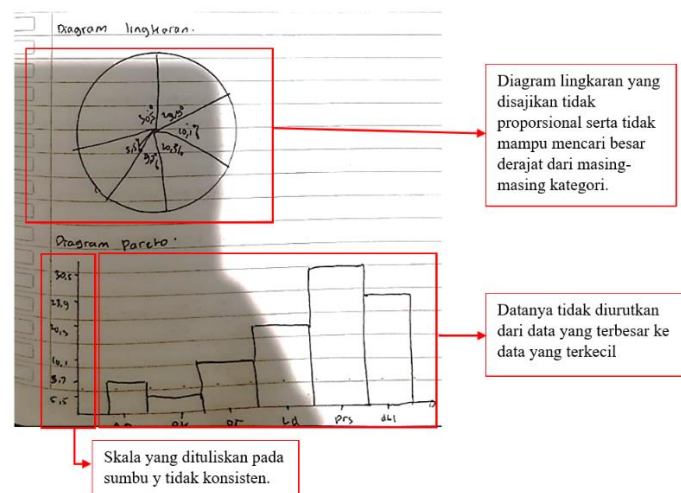 Diagram lingkaran.
30,5°
10,1%
20,3%
Diagram yang
disajikan tidak
proporsional serta tidak
mampu mencari besar
derajat dari masing-
masing kategori.
Diagram pareto.
30,5
23,9
20,3
10,1
8,7
5,5
Ld
prs
dll
Datanya tidak diurutkan
dari data yang terbesar ke
data yang terkecil
Skala yang dituliskan pada
sumbu y tidak konsisten.